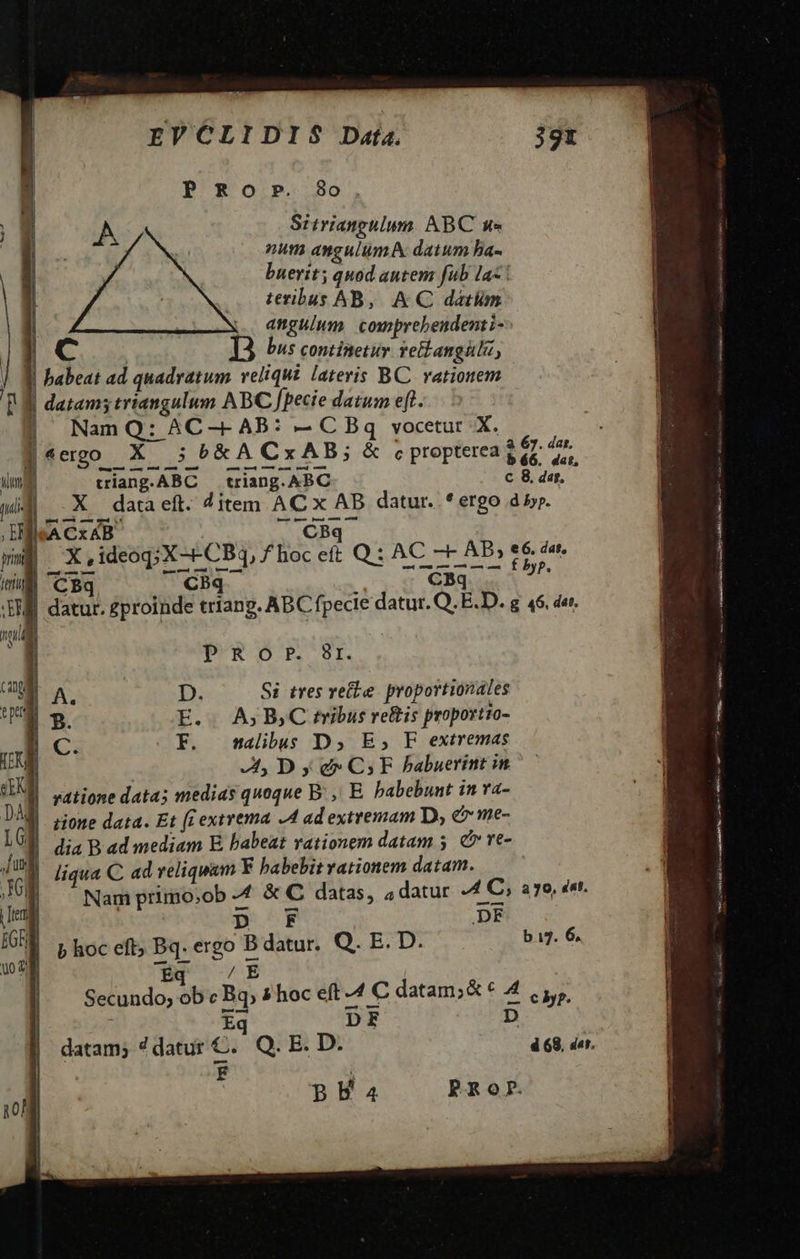 EVCLIDIS Data. 391
PROP. 80
A
C
B
Si triangulum ABC u-
num angulum A datum ha-
buerit; quod autem ſub la-
teribus AB, AC datum
angulum comprehendenti-
bus continetur rectangulũ,
habeat ad quadratum reliqui lateris BC rationem
datam; triangulum ABC ſpecie datum eſt.
Nam Q: AC + AB: — CBq vocetur X.
a ergo X ; b & AC x AB; & c propterea
triang. ABC triang. ABC
a 67. dat.
b 66. dat.
c 8. dat.
X data eſt. d item AC x AB datur. e ergo
AC x AB CBq
d hyp.
X, ideoq; X + CBq, f hoc eſt Q: AC + AB,
CBq CBq CBq
e 6. dat.
f hyp.
datur. g proinde triang. ABC ſpecie datur. Q. E. D. g 46. dat.
PROP. 81.
A. D. Si tres rectæ proportionales
B. E. A, B, C tribus rectis proportio-
C. F. nalibus D, E, F extremas
A, D, & C, F habuerint in
ratione data; medias quoque B, E habebunt in ra-
tione data. Et ſi extrema A ad extremam D, & me-
dia B ad mediam E habeat rationem datam; & re-
liqua C ad reliquam F habebit rationem datam.
Nam primo, ob A & C datas, a datur AC, a 70. dat.
D F DF
b hoc eſt, Bq. ergo B datur. Q. E. D. b 17. 6.
Eq / E
Secundo, ob c Bq, b hoc eſt AC datam, & c A c hyp.
Eq DF D
datam, d datur C. Q. E. D. d 68. dat.
F
Bb 4 PROP.